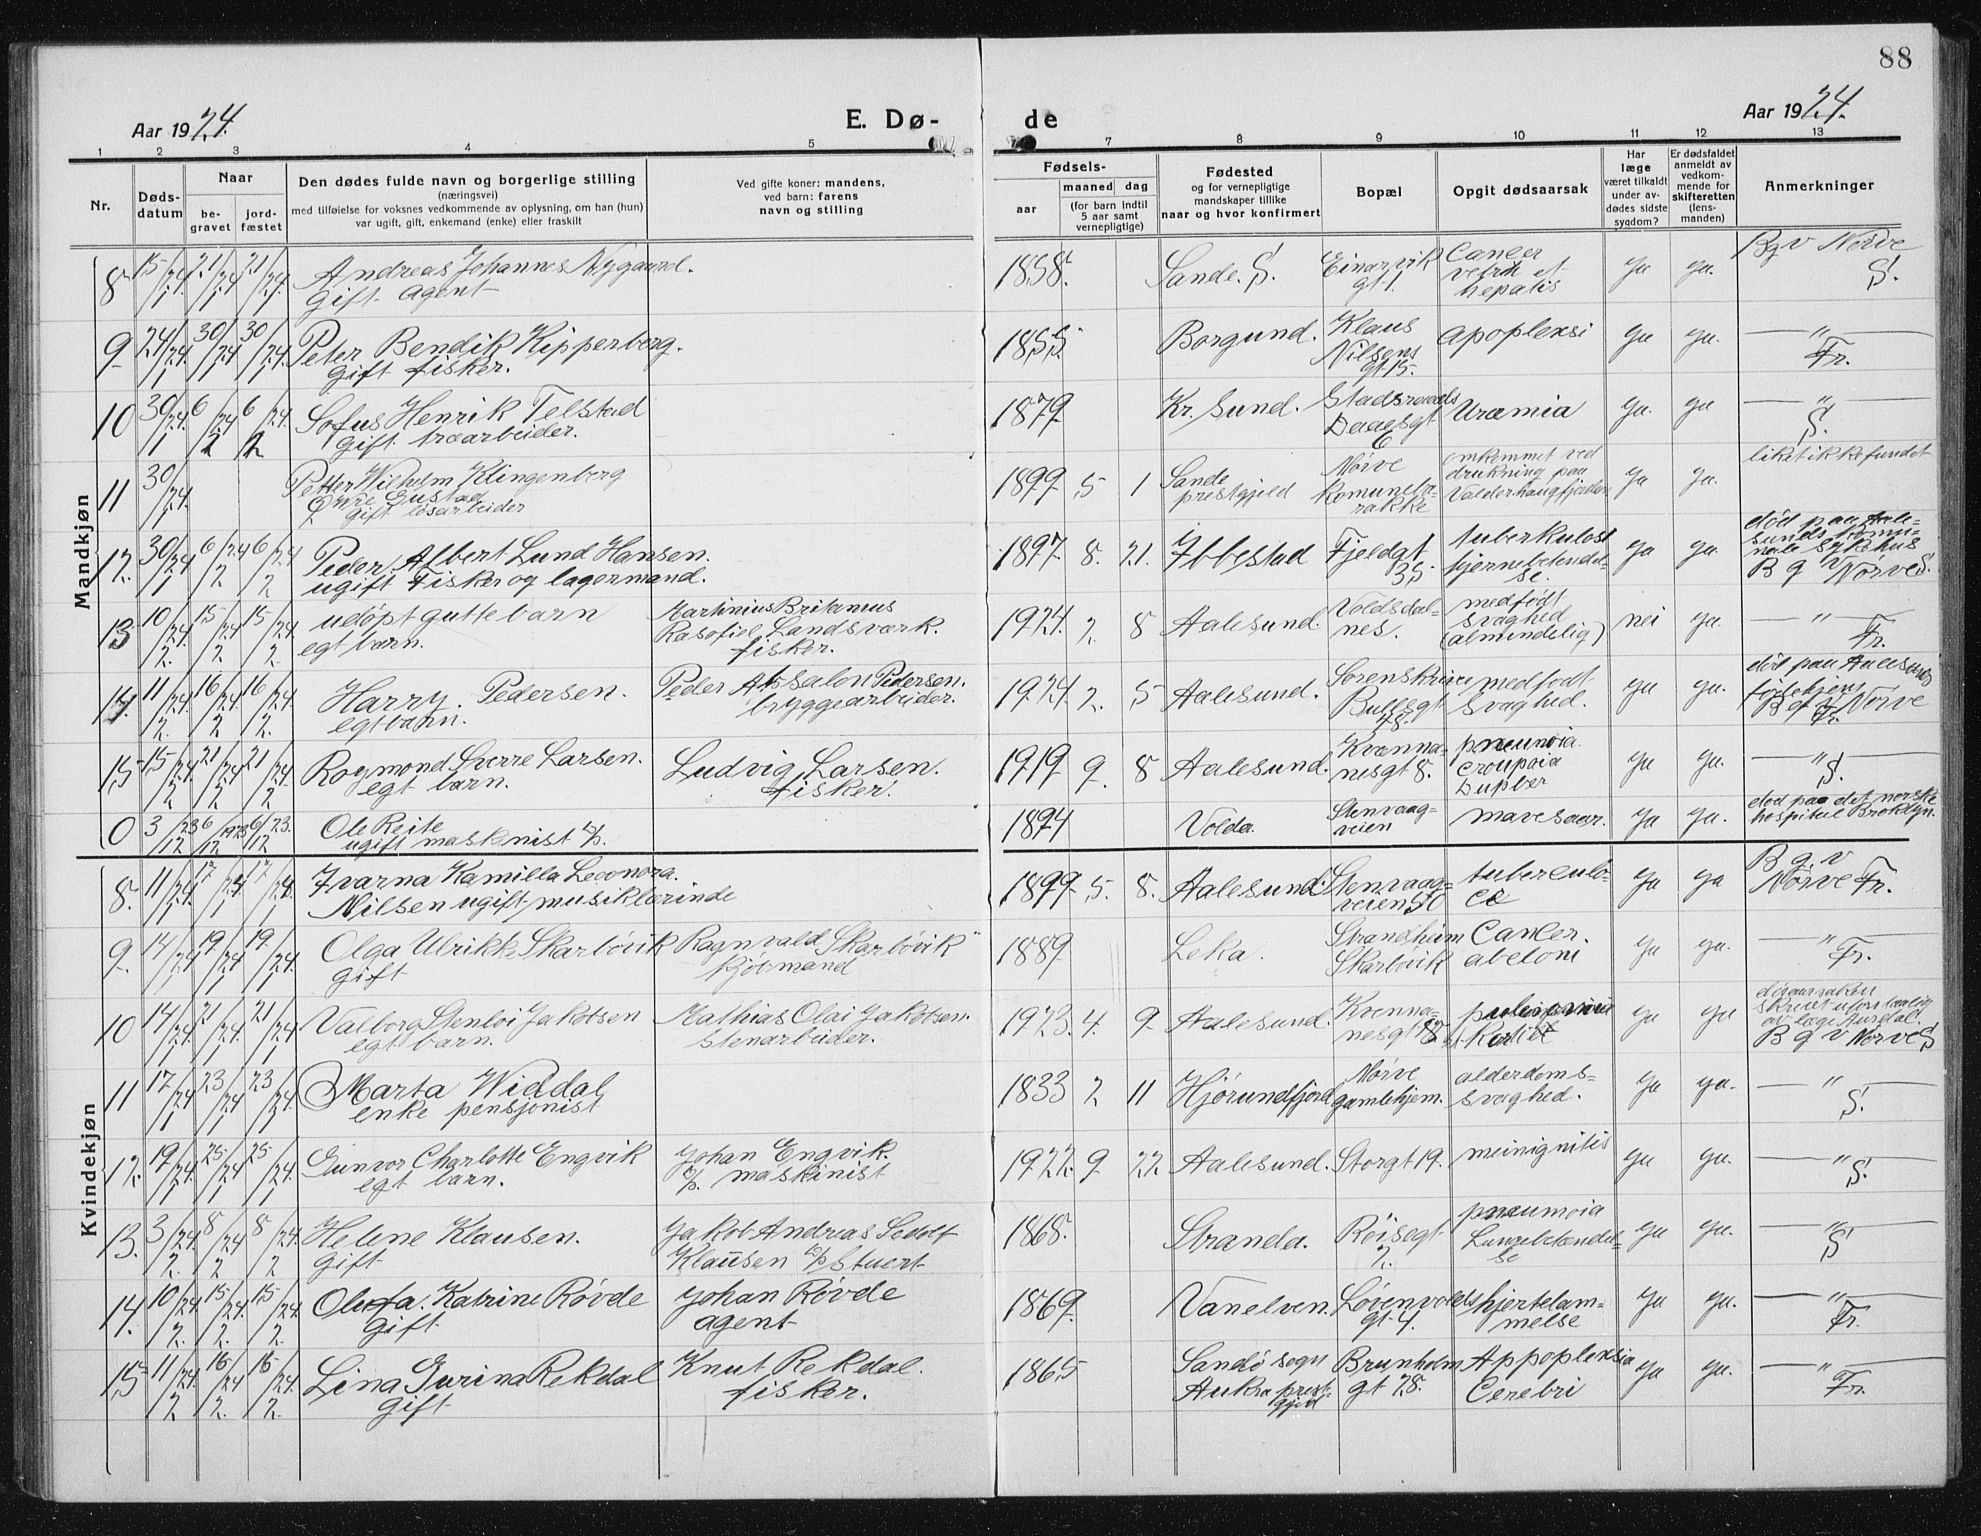 88
Aar 1924. E. Dø- de Aar 1924.
1 2 3 4 5 7 8 9 10 11 12 13
Nr.
Døds-
datum
Naar
be-
gravet
jord-
fæstet
Den dødes fulde navn og borgerlige stilling
(næringsvei)
med tilføielse for voksnes vedkommende av oplysning, om han (hun)
var ugift, gift, enkemand (enke) eller fraskilt
Ved gifte koner: mandens,
ved barn: farens
navn og stilling
Fødsels-
aar
maaned dag
(for barn indtil
5 aar samt
vernepligtige)
Fødested
og for vernepligtige
mandskaper tillike
naar og hvor konfirmert
Bopæl
Opgit dødsaarsak
Har
læge
været tilkaldt
under av-
dødes sidste
sygdom?
Er dødsfaldet
anmeldt av
vedkom-
mende for
skifteretten
(lens-
manden)
Anmerkninger
Mandkjøn
8 15/1 24. 21/1 24 21/1 24. Andreas Johannes Nygaard.
Gift agent
1858. Sande. S. Einarvik
gt 1. Cancer
et
hepatis ja ja. Bgv Nørve
S.
9 24/1 24. 30/1 24 30/1 24. Peter Bendik Kipperberg.
Gift fisker.
1855 Borgund. Klaus
Nilsens
gt 15. apopleksi ja ja. —"—
Fr.
10 30/1 24. 6/2 24 6/2 24. Sofus Henrik Telstad
Gift træarbeider.
1879 Kr. sund. Stadsraads
Daaesgt
6 Uræmia ja. ja —"—
S.
11 30/1 24. Petter Wilhelm Klingenberg
Gustad
gift løsarbeider
1899 5 1 Sande
prestgjeld Nørve
komuneba-
rakke omkommet ved
drukning paa
Valderhaugfjorden ja ja. liket ikke fundet
12. 30/1 24 6/2 24 6/2 24 Peder Albert Lund Hansen.
ugift fisker og lagermand.
1897. 8. 21. Ibbestad Fjeldgt.
35 tuberkuløs
hjernebetendel-
se. ja ja. død paa Aale-
sunds komu-
nale sykehus
B g v Nørve S.
13 10/2 24. 15/2 24 15/2 24. udøpt guttebarn
egt barn. Martinius Britanius
Landsværk.
fisker.
1924. 2 8 Aalesund. Voldsdal-
nes. medfødt
svaghed
(almindelig) nei ja. —"—
Fr.
14. 11/2 24. 16/2 24 16/2 24. Harry. Pedersen.
egt barn. Peder Absalon Pedersen.
bryggearbeider.
1924. 2 5 Aalesund. Sorenskriver
Bullsgt
medfødt
svaghed. ja ja. død paa Aalesunds
fødehjem
B g v Nørve
Fr.
15 15/2 24 21/2 24 21/2 24. Rogmond Sverre Larsen.
egt barn. Ludvig Larsen.
fisker.
1919 9 8 Aalesund. Kvenna-
nesgt 8. pneumoia
croupoia
ja ja. —"—
S.
0 3/12 23 6/12 1923 6/12 23. Ole Reite
ugift maskinist d/s.
1894 Volda. Stenvaag-
veien mavesaar. ja ja. død paa det norske
hospital Broklyn.
Kvindekjøn
8. 11/1 24. 17/1 24 17/1 24. Ivarna Kamilla Leonora.
Nilsen ugift musiklærinde
1899 5. 8. Aalesund. Stenvaag-
veien 50 tuberculo-
ce ja ja B g. v
Nørve Fr.
9. 14/1 24 19/1 24 19/1 24. Olga Ulrikke Skarbøvik
gift Ragnvald Skarbøvik
kjøbmand
1889 Leka. Strandheim
Skarbøvik Cancer.
abeloni ja ja. —"—
Fr.
10 14/1 24. 21/1 24. 21/1 24 Valborg Stenloi Jakobsen
egt barn. Mathias Olai Jakobsen.
stenarbeider.
1923. 4. 9 Aalesund. Kvenna-
nesgt
ja ja dødsaarsaken
skrevet
av læge Aursdal.
B g v Nørve S
11 17/1 24 23/1 24 23/1 24. Marta Widdal
enke pensjonist
1833 2 11 Hjørundfjord Nørve
gamlehjem. alderdoms-
svaghed. ja ja. —"—
S.
12. 19/1 24 25/1 24 25/1 24. Gunvor Charlotte Engvik
egt barn. Johan Engvik.
d/s. maskinist
1922. 9 22. Aalesund. Storgt 19. meinignitis ja ja. —"—
S.
13. 3/2 24. 8/2 24 8/2 24. Helene Klausen.
Gift Jakob Andreas Sedolf
Klausen d/s Stuert
1868. Stranda. Røisegt
2. pneumoia
Lungebetendel-
se ja ja. —"—
S
14. 10/2 24 15/2 24. 15/2 24. Olufa. Katrine Røvde
Gift Johan Røvde
agent
1869. Vanelven. Løvenvolds
gt. 4. hjertelam-
melse ja ja. —"—
Fr.
15 11/2 24. 16/2 24 16/2 24. Lina Gurina Rekdal
Gift Knut Rekdal.
fisker.
1865 Sandø sogn
Aukra prest-
gjeld Brunholm
gt 28. Appopleksia
Cerebri ja ja. —"—
Fr.